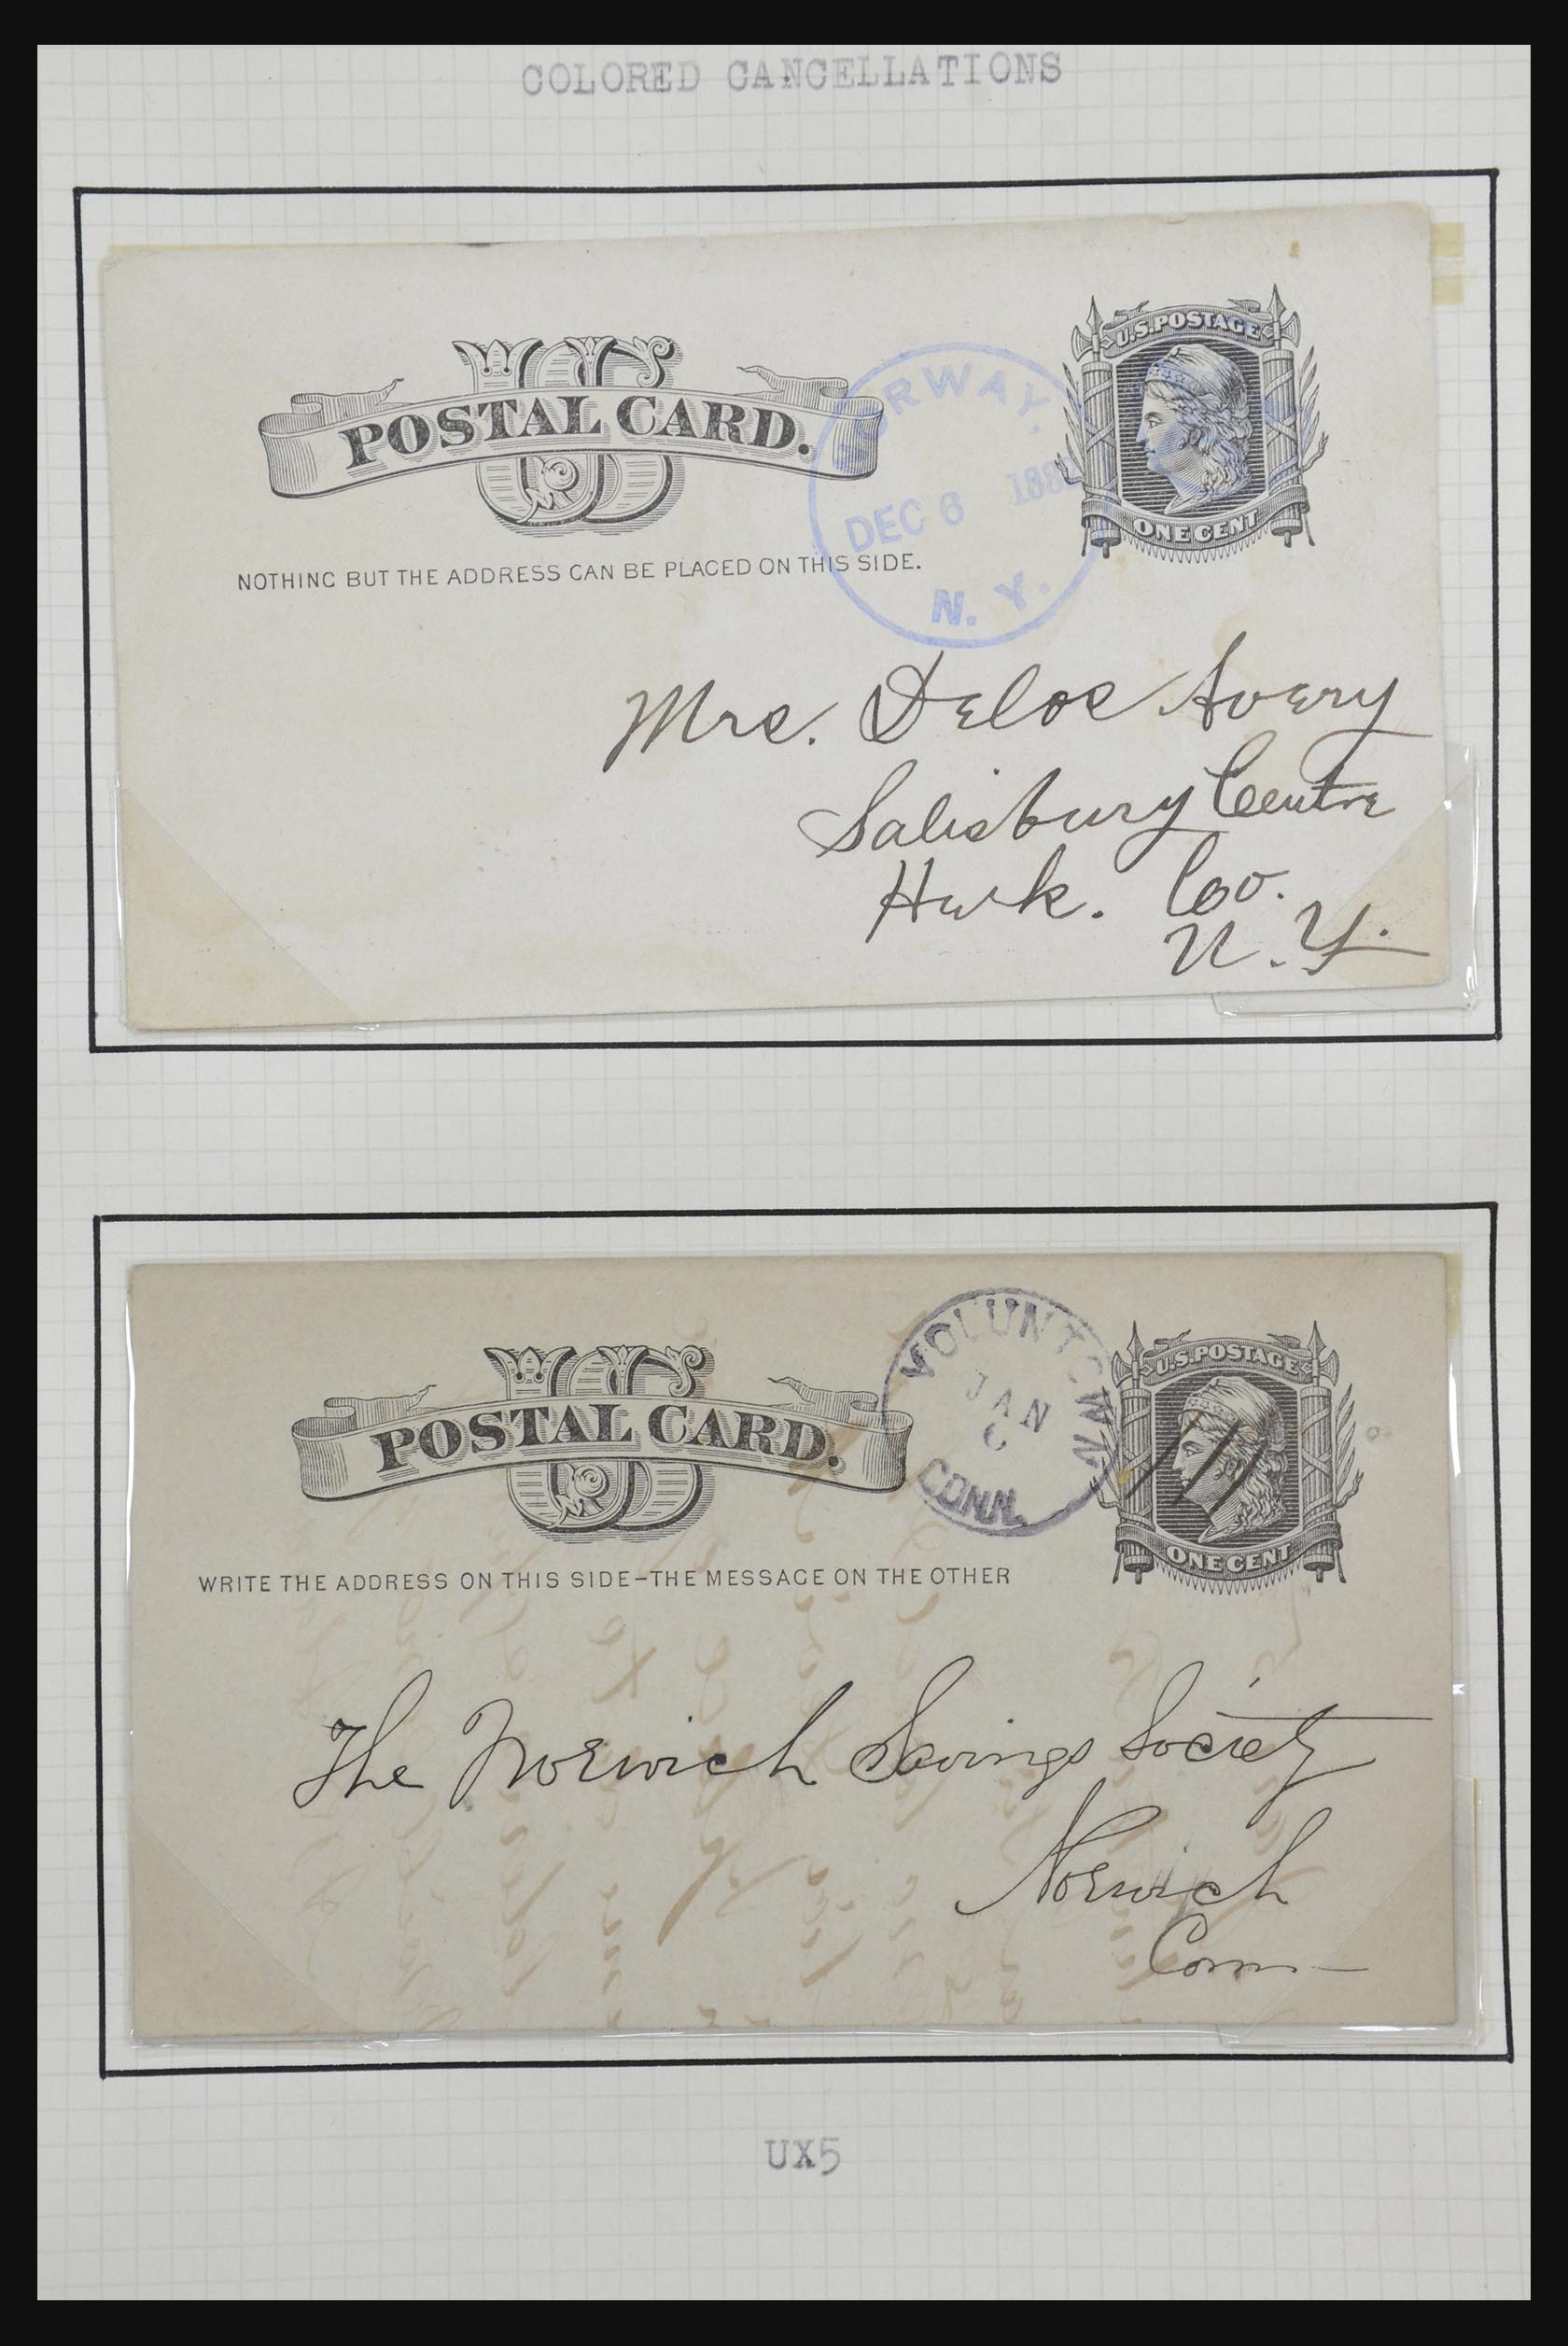 COLORED CANCELLATIONS
U.S. POSTAGE
US
POSTAL CARD.
NORWAY.
DEC 6 188
N. Y.
ONE CENT
NOTHING BUT THE ADDRESS CAN BE PLACED ON THIS SIDE.
Mrs. Delos Avery
Salisbury Centre
Herk. Co.
N. Y.
U.S. POSTAGE
US
POSTAL CARD.
VOLUNTOWN
JAN
CONN.
ONE CENT
WRITE THE ADDRESS ON THIS SIDE-THE MESSAGE ON THE OTHER
The Norwich Savings Society
Norwich
Conn
UX5